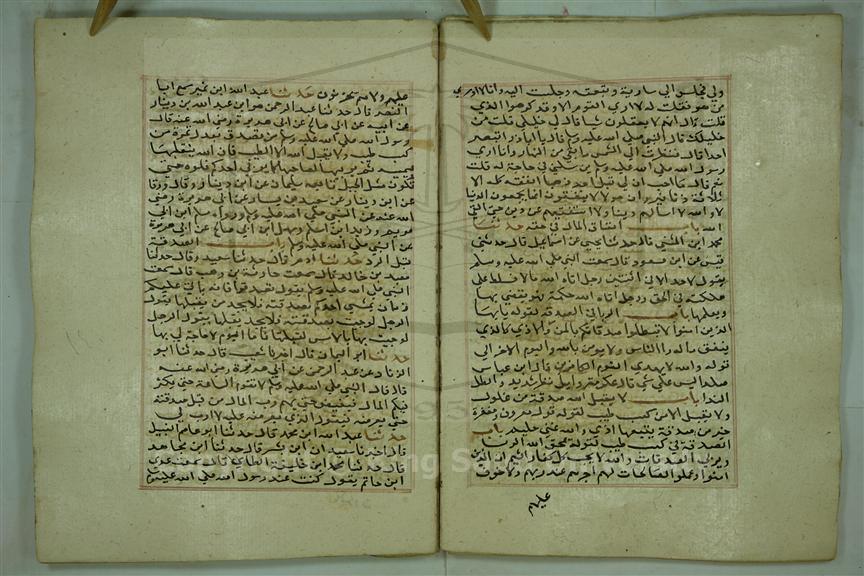 ولي فجلس الى سارية وتبعته وجلست اليه وانا لا ادري
من هو فقلت له لا ارى القوم الا وقد كرهوا الذي
قلت قال انهم لا يعقلون شيا قال لي خليلي قلت من
خليلك قال النبي صلى الله عليه وسلم قال يا اباذر اتبصر
احدا قال فنظرت الى الشمس ما بقي من النهار وانا ارى
رسول الله صلى الله عليه وسلم يرسلني في حاجة له قلت
نعم قال ما احب ان لي مثل احد ذهبا انفقه كله الا
ثلاثة دنانير وان هولا لا يعقلون انما يجمعون الدنيا
لا والله لا اسالهم دنيا ولا استفتيهم عن دين حتى القى
الله باب انفاق المال في حقه حدثنا
محمد ابن المثنى قال حدثنا يحيى عن اسماعيل قال حدثني
قيس عن ابن مسعود قال سمعت النبي صلى الله عليه وسلم
يقول لا حسد الا في اثنتين رجل اتاه الله مالا فسلط على
هلكته في الحق ورجل اتاه الله حكمة فهو يقضي بها
ويعلمها باب الريا في الصدقة لقوله يا ايها
الذين امنوا لا تبطلوا صدقاتكم بالمن والاذى كالذي
ينفق ماله رئا الناس ولا يومن بالله واليوم الاخر الى
قوله والله لا يهدي القوم الكافرين قال ابن عباس
صلدا ليس عليه شي وقال عكرمة وابل مطر شديد والطل
الندا باب لا يقبل الله صدقة من غلول
ولا يقبل الا من كسب طيب لقوله قول معروف ومغفرة
خير من صدقة يتبعها اذى والله غني حليم باب
الصدقة من كسب طيب لقوله يمحق الله الربا
ويربي الصدقات والله لا يحب كل كفار اثيم ان الذين
امنوا وعملوا الصالحات لهم اجرهم عند ربهم ولا خوف
عليهم
عليهم ولا هم يحزنون حدثنا عبد الله ابن منير سمع ابا
النضر قال حدثنا عبد الرحمن هو ابن عبد الله بن دينار
عن ابيه عن ابي صالح عن ابي هريرة رضي الله عنه قال قال
رسول الله صلى الله عليه وسلم من تصدق بعدل تمرة من
كسب طيب ولا يقبل الله الا الطيب فان الله يتقبلها
بيمينه ثم يربيها لصاحبها كما يربي احدكم فلوه حتى
تكون مثل الجبل تابعه سليمان عن ابن دينار وقال ورقا
عن ابن دينار عن سعيد بن يسار عن ابي هريرة رضي
الله عنه عن النبي صلى الله عليه وسلم ورواه مسلم ابن ابي
مريم وزيد ابن اسلم وسهيل عن ابي صالح عن ابي هريرة
عن النبي صلى الله عليه وسلم باب الصدقة
قبل الرد حدثنا ادم قال حدثنا شعبة قال حدثنا
معبد بن خالد قال سمعت حارثة بن وهب قال سمعت
النبي صلى الله عليه وسلم يقول تصدقوا فانه ياتي عليكم
زمان يمشي احدكم بصدقته فلا يجد من يقبلها يقول
الرجل لو جيت بها بالامس لقبلتها فاما اليوم لا حاجة لي بها
حدثنا ابو اليمان قال اخبرنا شعيب قال حدثنا ابو
الزناد عن عبد الرحمن عن ابي هريرة رضي الله عنه
قال قال النبي صلى الله عليه وسلم لا تقوم الساعة حتى يكثر
فيكم المال فيفيض حتى يهم رب المال من يقبل صدقته
حتى يعرضه فيقول الذي يعرضه عليه لا ارب لي
حدثنا عبد الله ابن محمد قال حدثنا ابو عاصم النبيل
قال اخبرنا سعدان ابن بشر قال حدثنا ابو مجاهد
قال حدثنا محل ابن خليفة الطاي قال سمعت عدي
ابن حاتم يقول كنت عند رسول الله صلى الله عليه وسلم